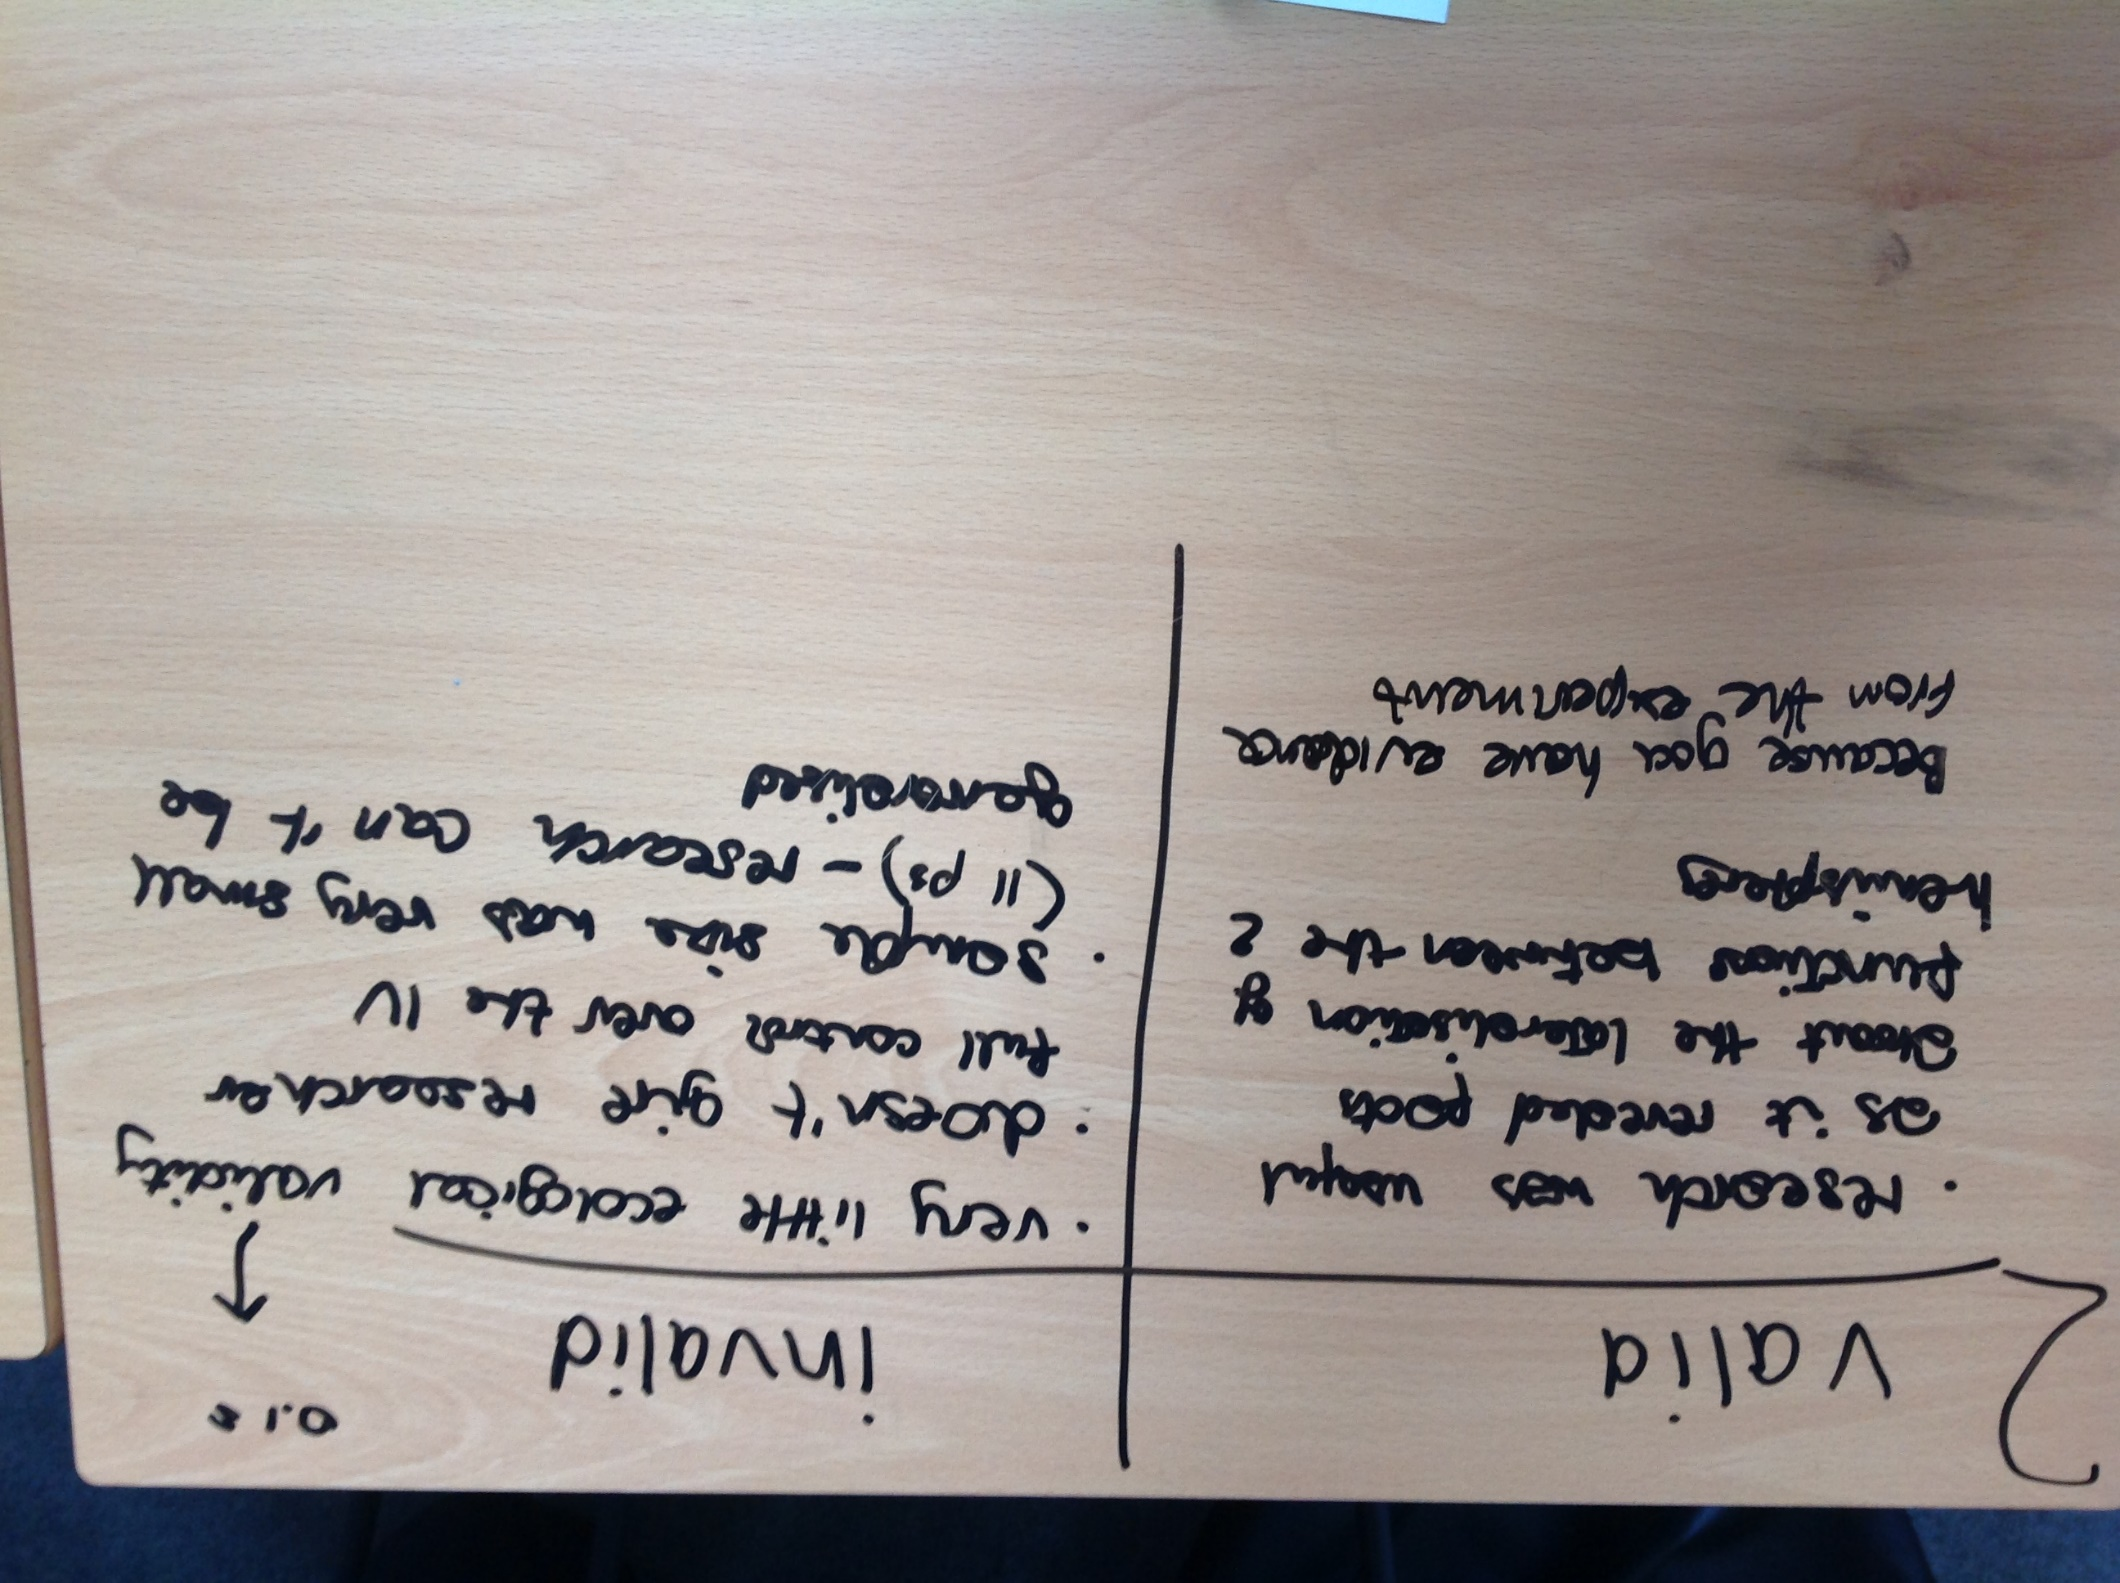 2
valid
· research was useful
as it revealed facts
about the lateralisation of
functions between the 2
hemispheres
Because you have evidence
from the experiment
invalid
0.1s
· very little ecological validity
· doesn't give researcher
full control over the IV
· sample size was very small
(11 ps) - research can't be
generalised